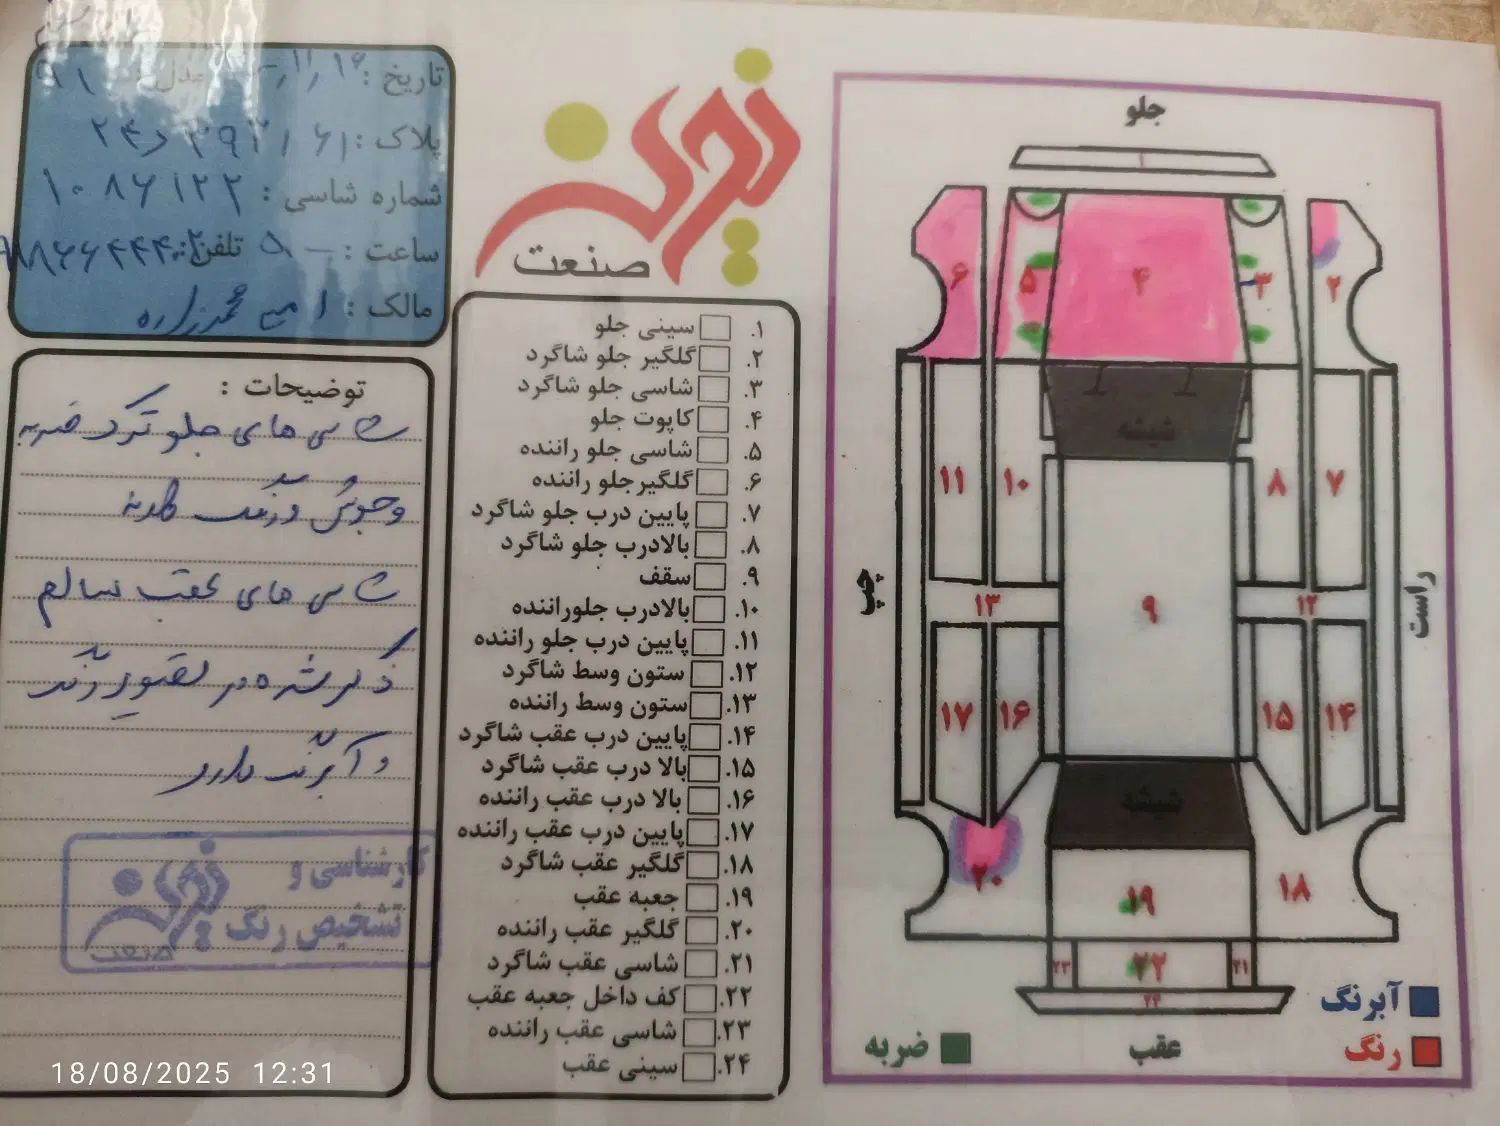 تاریخ :
پلاک :
شماره شاسی : ۱۰۸۶۱۲۲
ساعت : تلفن:
مالک : امیر محمدزاده
توضیحات :
شاسی های جلو ترک ضربه
و جوش و رنگ
شاسی های عقب سالم
ذکر شده در تصویر رنگ
و آبرنگ دارد
کارشناسی و
تشخیص رنگ
صنعت
صنعت
۱. سینی جلو
۲. گلگیر جلو شاگرد
۳. شاسی جلو شاگرد
۴. کاپوت جلو
۵. شاسی جلو راننده
۶. گلگیرجلو راننده
۷. پایین درب جلو شاگرد
۸. بالادرب جلو شاگرد
۹. سقف
۱۰. بالادرب جلوراننده
۱۱. پایین درب جلو راننده
۱۲. ستون وسط شاگرد
۱۳. ستون وسط راننده
۱۴. پایین درب عقب شاگرد
۱۵. بالا درب عقب شاگرد
۱۶. بالا درب عقب راننده
۱۷. پایین درب عقب راننده
۱۸. گلگیر عقب شاگرد
۱۹. جعبه عقب
۲۰. گلگیر عقب راننده
۲۱. شاسی عقب شاگرد
۲۲. کف داخل جعبه عقب
۲۳. شاسی عقب راننده
۲۴. سینی عقب
جلو
۱
۶ ۵ ۴ ۳ ۲
شیشه
۱۱ ۱۰ ۸ ۷
چپ
راست
۱۳ ۹ ۱۲
۱۷ ۱۶ ۱۵ ۱۴
شیشه
۲۰ ۱۹ ۱۸
۲۳ ۲۲ ۲۱
۲۴
آبرنگ
ضربه عقب رنگ
18/08/2025 12:31